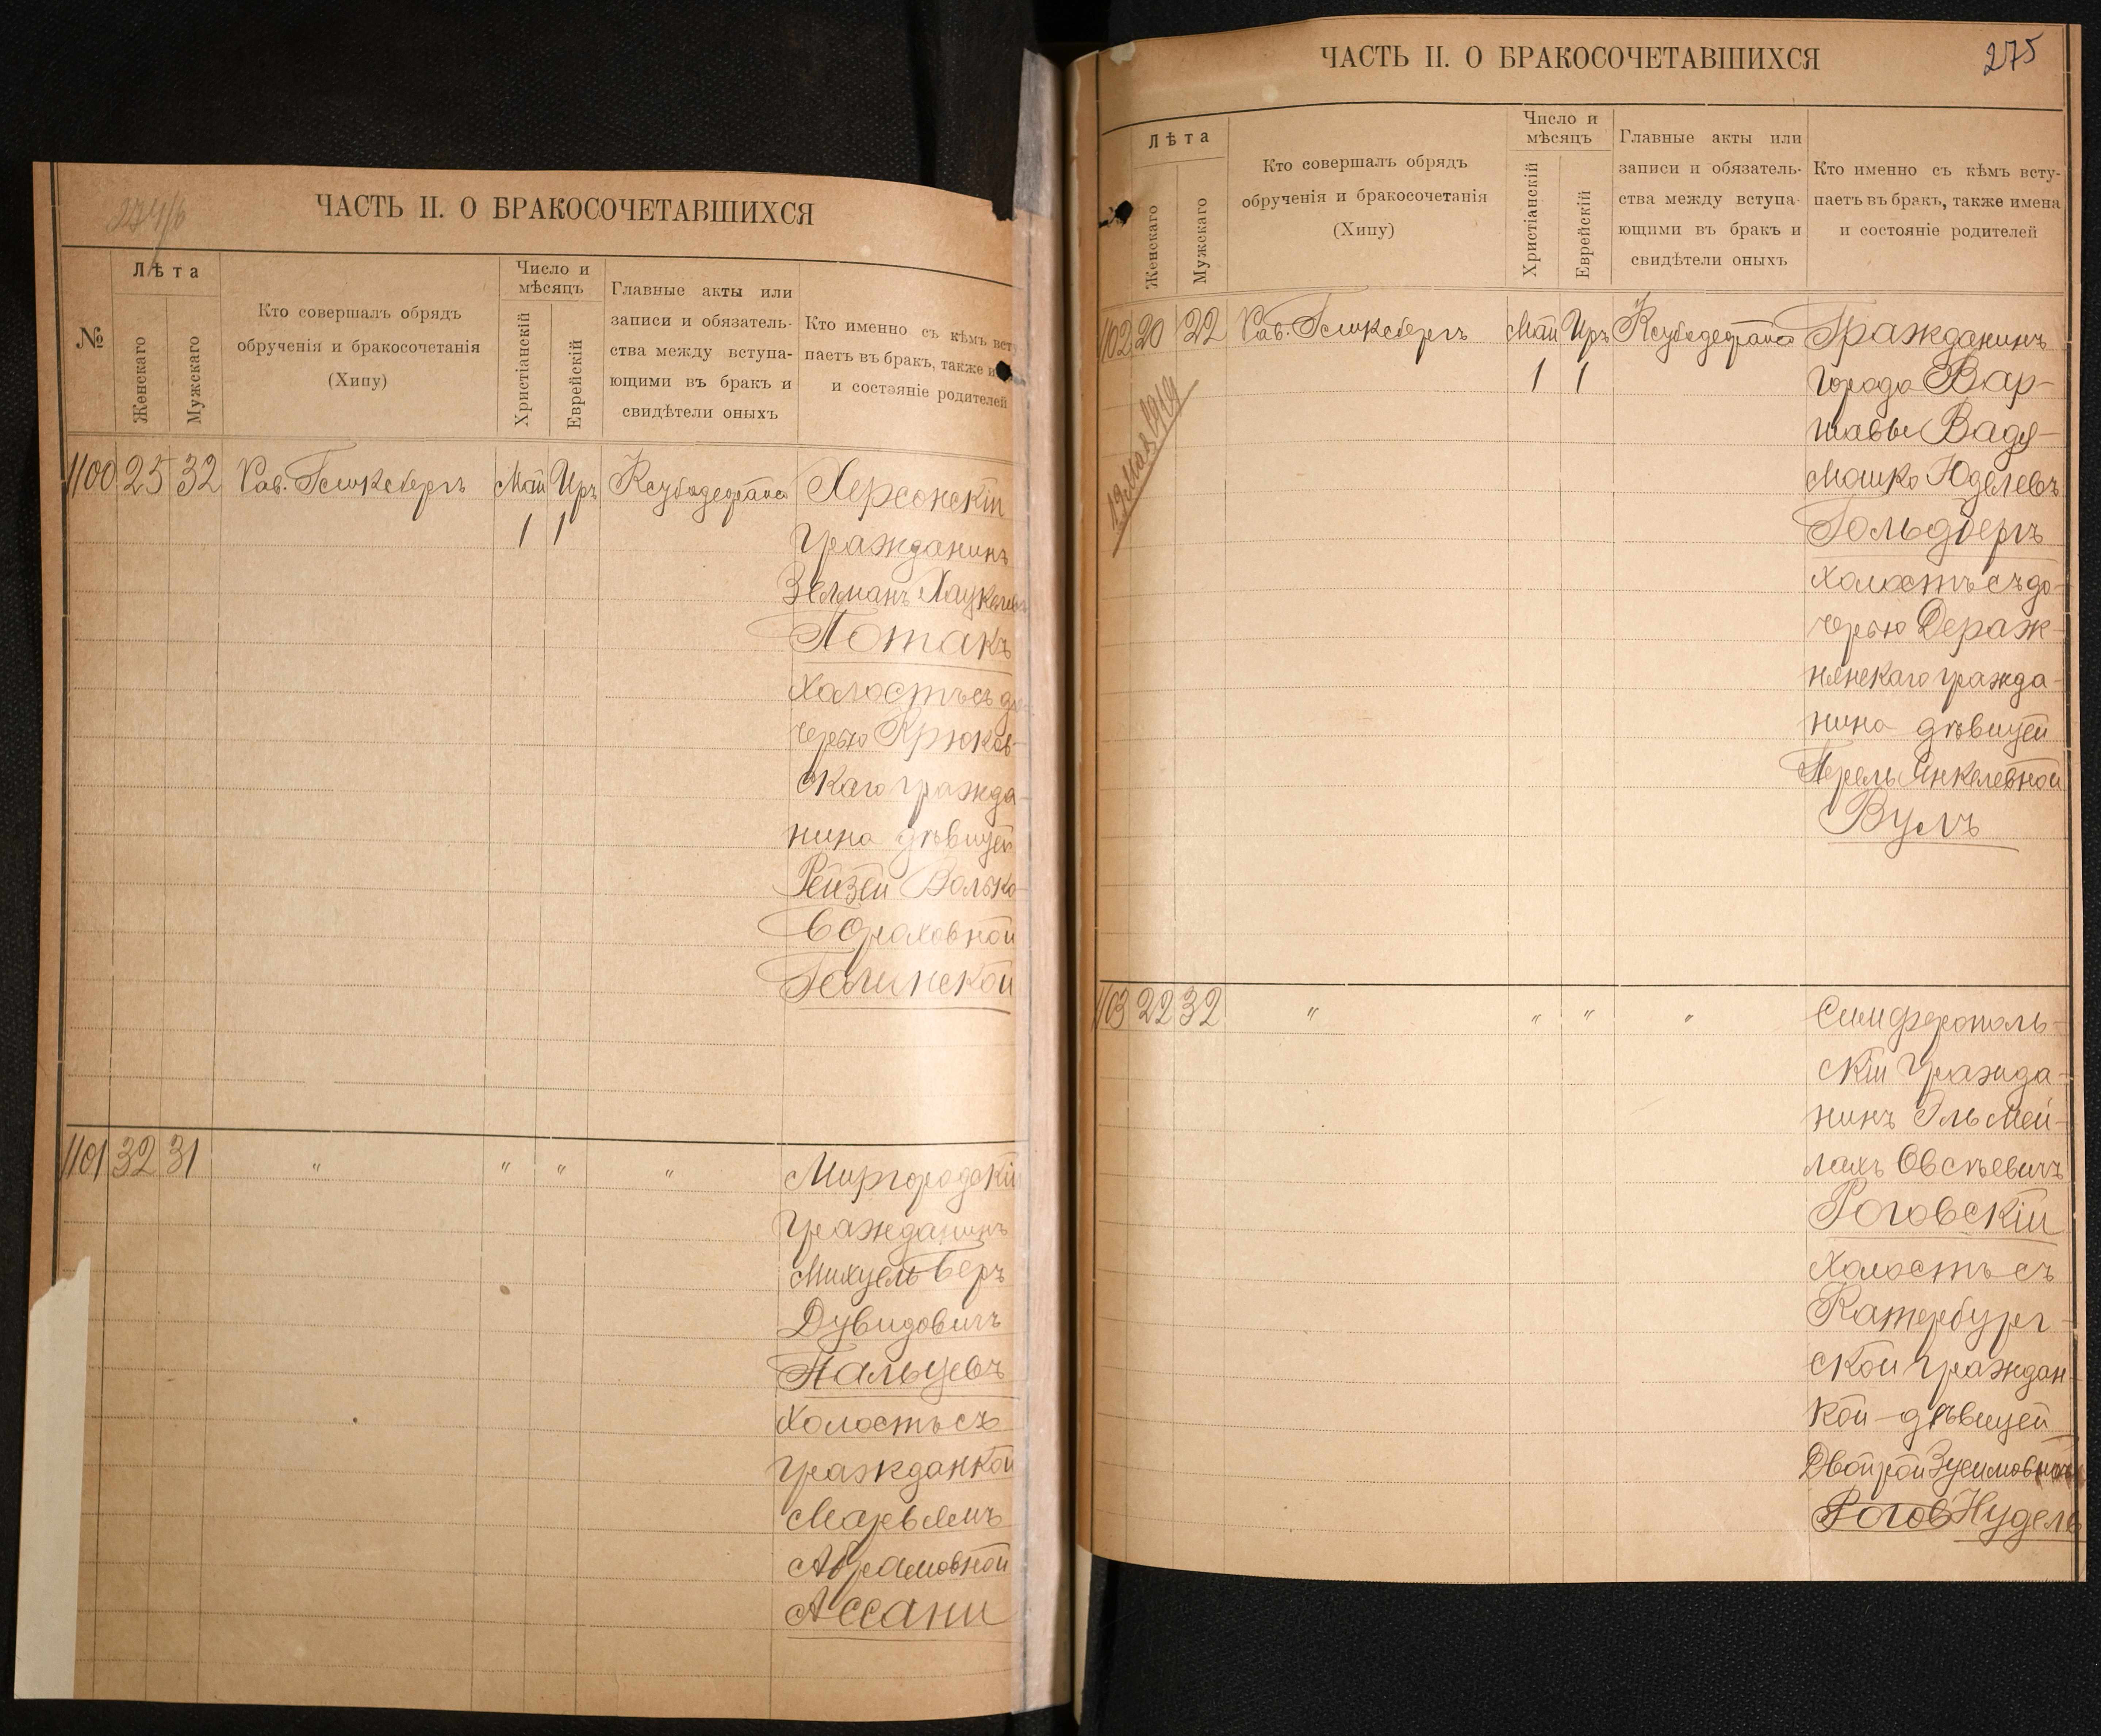 ЧАСТЬ II. О БРАКОСОЧЕТАВШИХСЯ
№
Лѣта
Женскаго
Мужскаго
Кто совершалъ обрядъ
обрученія и бракосочетанія
(Хипу)
Число и
мѣсяцъ
Христіанскій
Еврейскій
Главные акты или
записи и обязатель-
ства между вступа-
ющими въ бракъ и
свидѣтели оныхъ
Кто именно съ кѣмъ вст
паетъ въ бракъ, также
и состояніе родителей
1100 25 32 Рав. Май Ир.
1 1
Херсонскій
гражданинъ
Зелманъ
Потакъ
холостъ съ до
черью Крюков-
скаго гражда-
нина дѣвицей
Рейзей Волько
Сраховной
Гелинской
1101 32 31 " " " "
Миргородскій
гражданинъ
Михуель Беръ
Дувидовичъ
Пальцевъ
холостъ съ
гражданкой
Марьямъ
Абрамовной
Ассани
ЧАСТЬ II. О БРАКОСОЧЕТАВШИХСЯ
275
Лѣта
Женскаго
Мужскаго
Кто совершалъ обрядъ
обрученія и бракосочетанія
(Хипу)
Число и
мѣсяцъ
Христіанскій
Еврейскій
Главные акты или
записи и обязатель-
ства между вступа-
ющими въ бракъ и
свидѣтели оныхъ
Кто именно съ кѣмъ всту-
паетъ въ бракъ, также имена
и состояніе родителей
1102 20 22 Рав. Май Ир.
1 1
19 Мая 1919
Гражданинъ
города Вар-
шавы Вадя-
Мошко Юделевъ
Гольдбергъ
холостъ съ до-
черью Дераж-
нянскаго гражда-
нина дѣвицей
Перель Янкелевной
Вулъ
1103 22 32 " " " "
Симферополь-
скій гражда-
нинъ Эль Мей-
лахъ Овсѣевичъ
Роговскій
холостъ съ
Катербург-
ской граждан-
кой - дѣвицей
Двойрой Зусимовной
Рогов Нудель